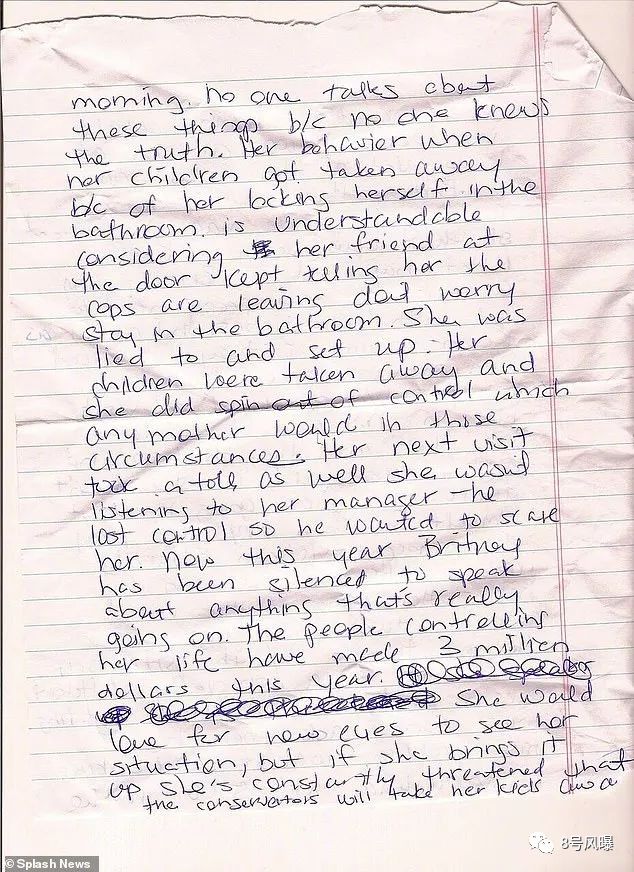 morning. no one talks about
these things b/c no one knows
the truth. Her behavior when
her children got taken away
b/c of her locking herself in the
bathroom. is understandable
considering her friend at
the door kept telling her the
cops are leaving don't worry
stay in the bathroom. She was
lied to and set up. Her
children were taken away and
she did spin out of control which
any mother would in those
circumstances. Her next visit
took a toll, as well she wasn't
listening to her manager - he
lost control so he wanted to scare
her. Now this year Britney
has been silenced to speak
about anything that's really
going on. The people controlling
her life have made 3 million
dollars this year.
She would
love for new eyes to see her
situation, but if she brings it
up she's constantly threatened that
the conservators will take her kids awa
8号风曝
© Splash News